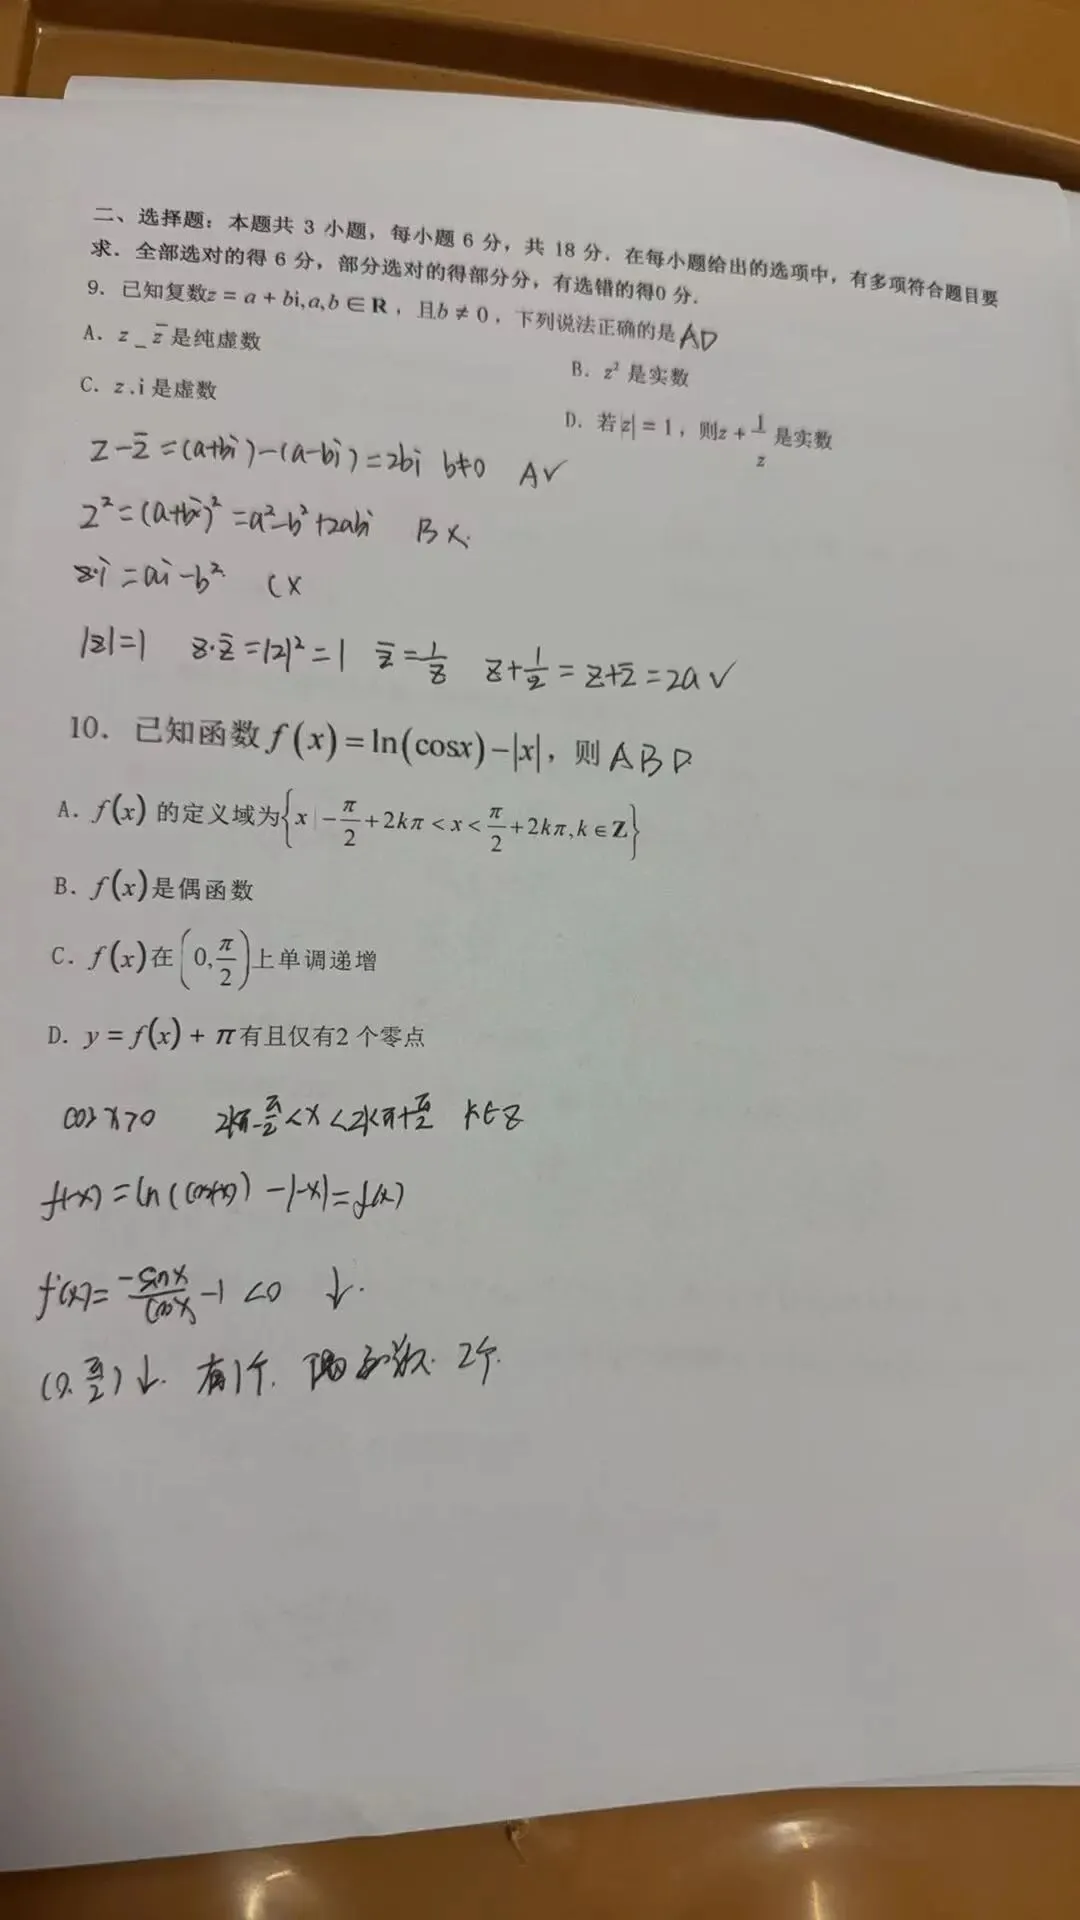 二、选择题：本题共 3 小题，每小题 6 分，共 18 分．在每小题给出的选项中，有多项符合题目要
求．全部选对的得 6 分，部分选对的得部分分，有选错的得0 分．
9．已知复数z = a + bi,a,b ∈ R，且b ≠ 0，下列说法正确的是 AD
A．z _ z̄ 是纯虚数
B．z² 是实数
C．z.i 是虚数
D．若|z| = 1，则z + 1/z 是实数
z-z̄=(a+bi)-(a-bi)=2bi b≠0 A✓
z²=(a+bi)²=a²-b²+2abi B×.
z·i=ai-b² C×
|z|=1 z·z̄=|z|²=1 z̄=1/z z+1/z=z+z̄=2a✓
10．已知函数 f(x)=ln(cosx)-|x|，则 ABD
A．f(x) 的定义域为{x|-π/2+2kπ<x<π/2+2kπ,k∈Z}
B．f(x)是偶函数
C．f(x)在(0,π/2)上单调递增
D．y=f(x)+π有且仅有2 个零点
cosx>0 2kπ-π/2<x<2kπ+π/2 k∈Z
f(-x)=ln(cos(-x))-|-x|=f(x)
f'(x)=-sinx/cosx-1<0 ↓.
(0.π/2)↓. 有1个. 偶函数. 2个.